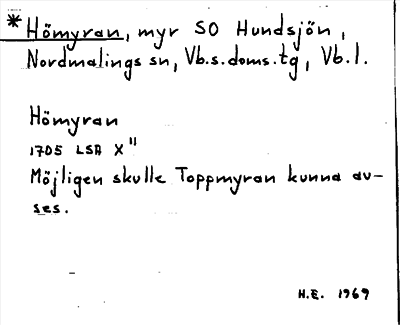 *Hömyran, myr SO Hundsjön,
Nordmalings sn, Vb.s.doms.tg, Vb.l.
Hömyran
1705 LSA X"
Möjligen skulle Toppmyran kunna av-
ses.
H.E. 1969